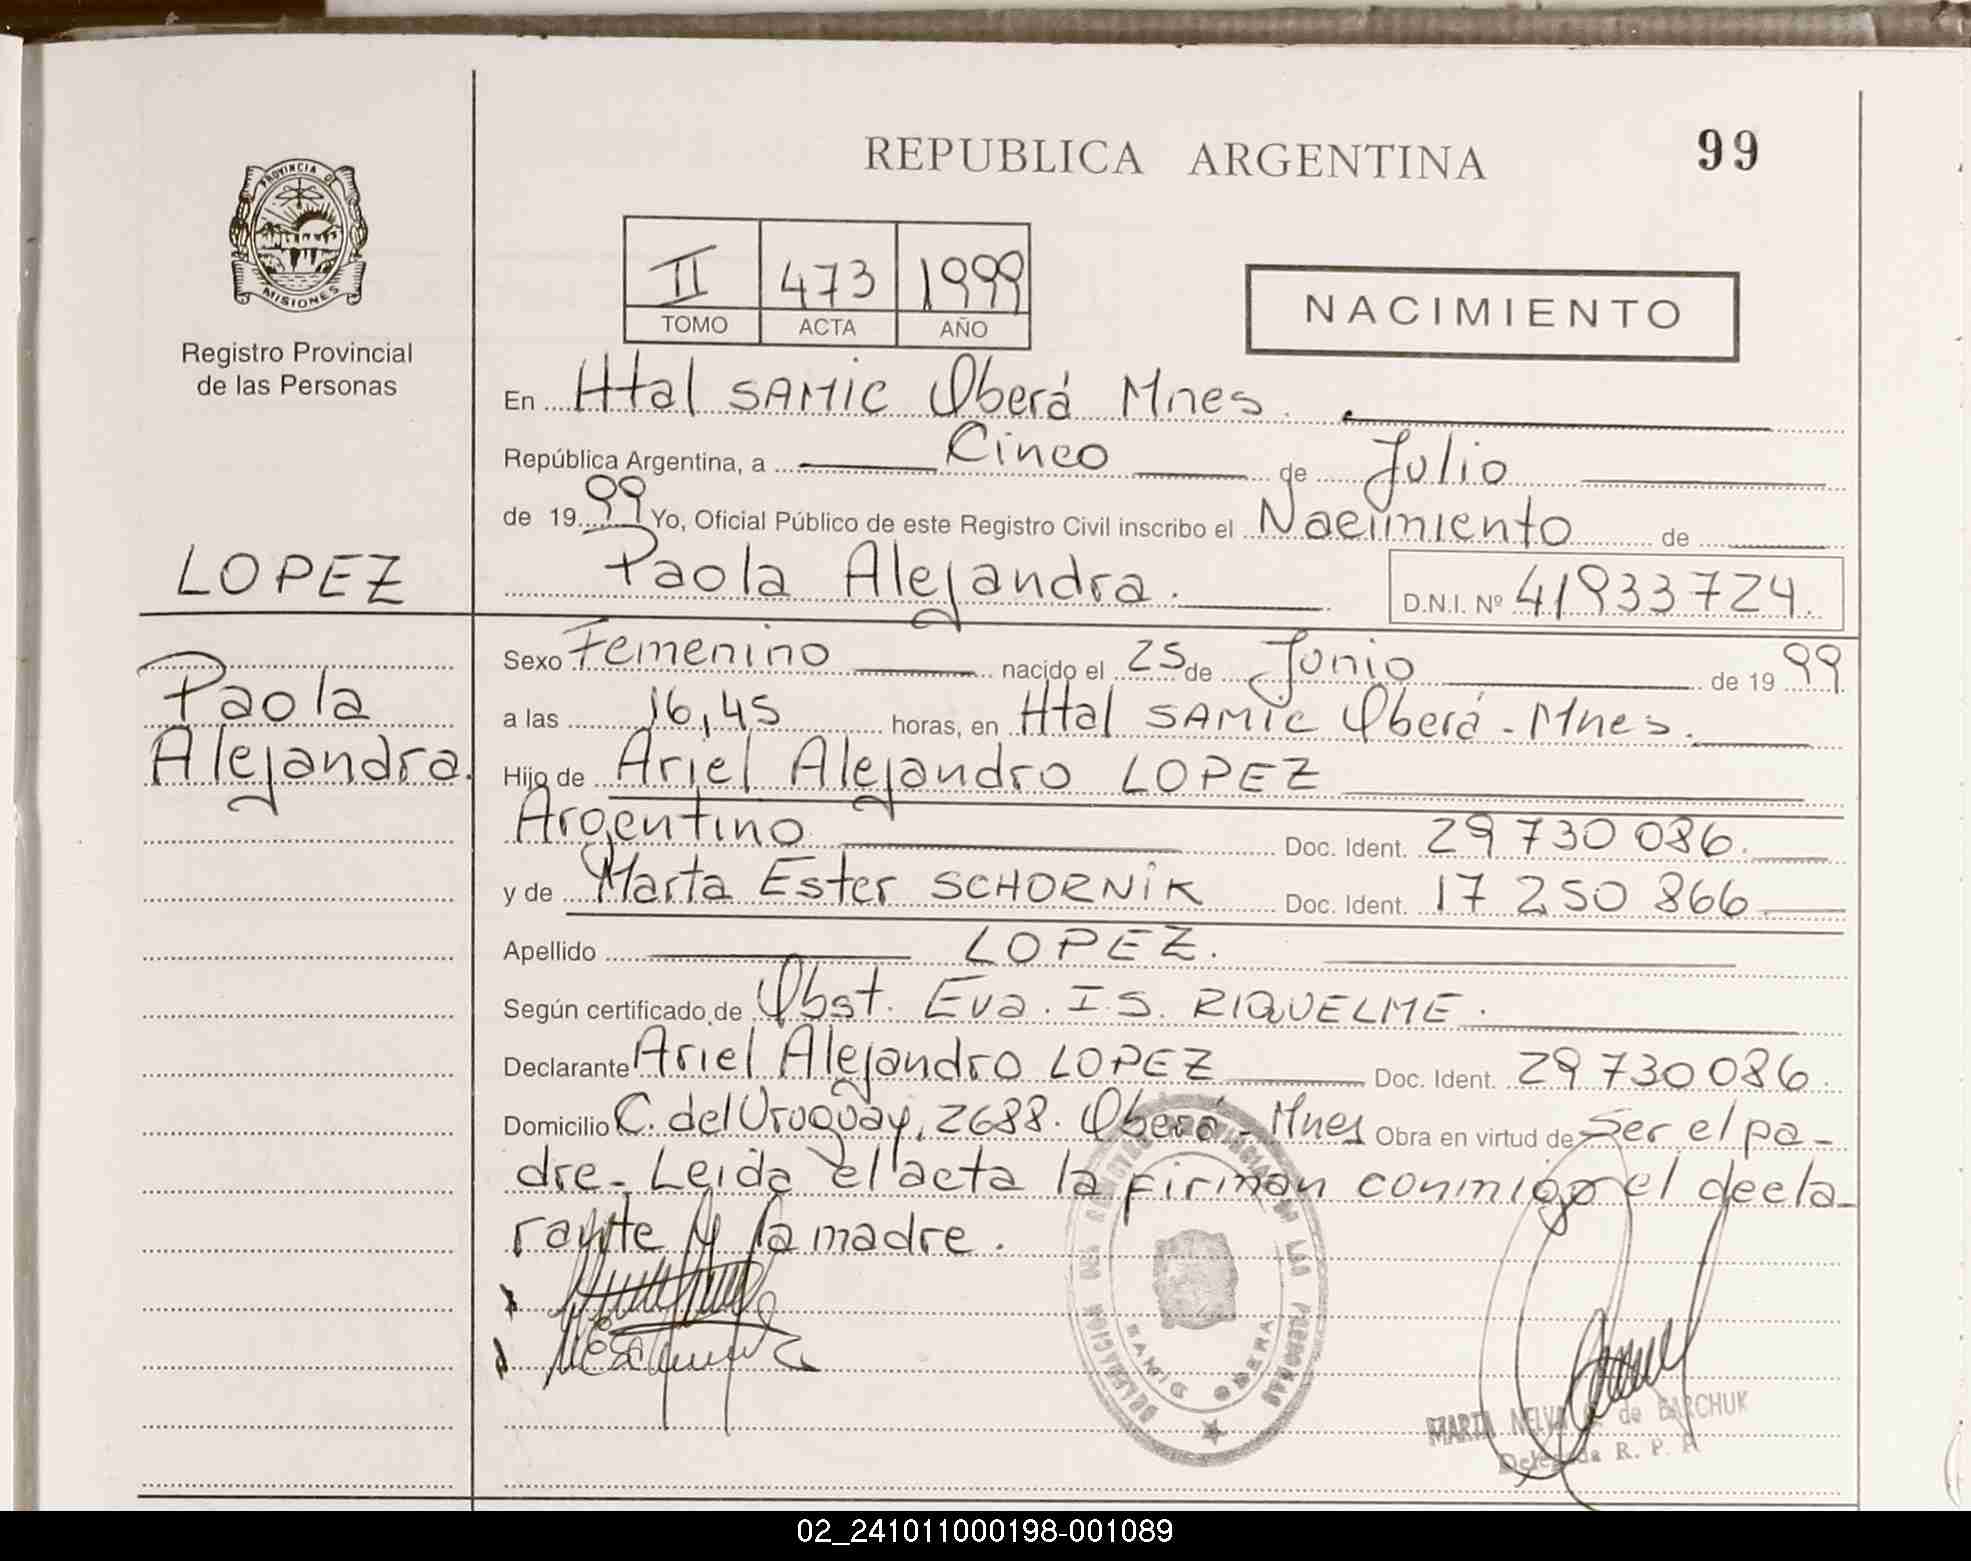 REPUBLICA ARGENTINA
99
PROVINCIA DE
MISIONES
Registro Provincial
de las Personas
II 473 1999
TOMO ACTA AÑO
NACIMIENTO
En Htal SAMIC Oberá Mnes.
República Argentina, a Cinco de Julio
de 1999 Yo, Oficial Público de este Registro Civil inscribo el Nacimiento de
Paola Alejandra. D.N.I. Nº 41933724.
LOPEZ
Paola
Alejandra.
Sexo Femenino nacido el 25 de Junio de 1999
a las 16,45 horas, en Htal SAMIC Oberá - Mnes.
Hijo de Ariel Alejandro LOPEZ
Argentino Doc. Ident. 29 730 086.
y de Marta Ester SCHORNIK Doc. Ident. 17 250 866
Apellido LOPEZ.
Según certificado de Obst. Eva. I.S. RIQUELME.
Declarante Ariel Alejandro LOPEZ Doc. Ident. 29 730 086.
Domicilio C. del Uruguay, 2688. Oberá - Mnes Obra en virtud de Ser el pa-
dre. Leida el acta la firman conmigo el decla-
rante y la madre.
DELEGACION DEL REGISTRO PROVINCIAL DE LAS PERSONAS
SAMIC OBERA
MARTA NELVA de BARCHUK
Delegada R. P. P.
02_241011000198-001089